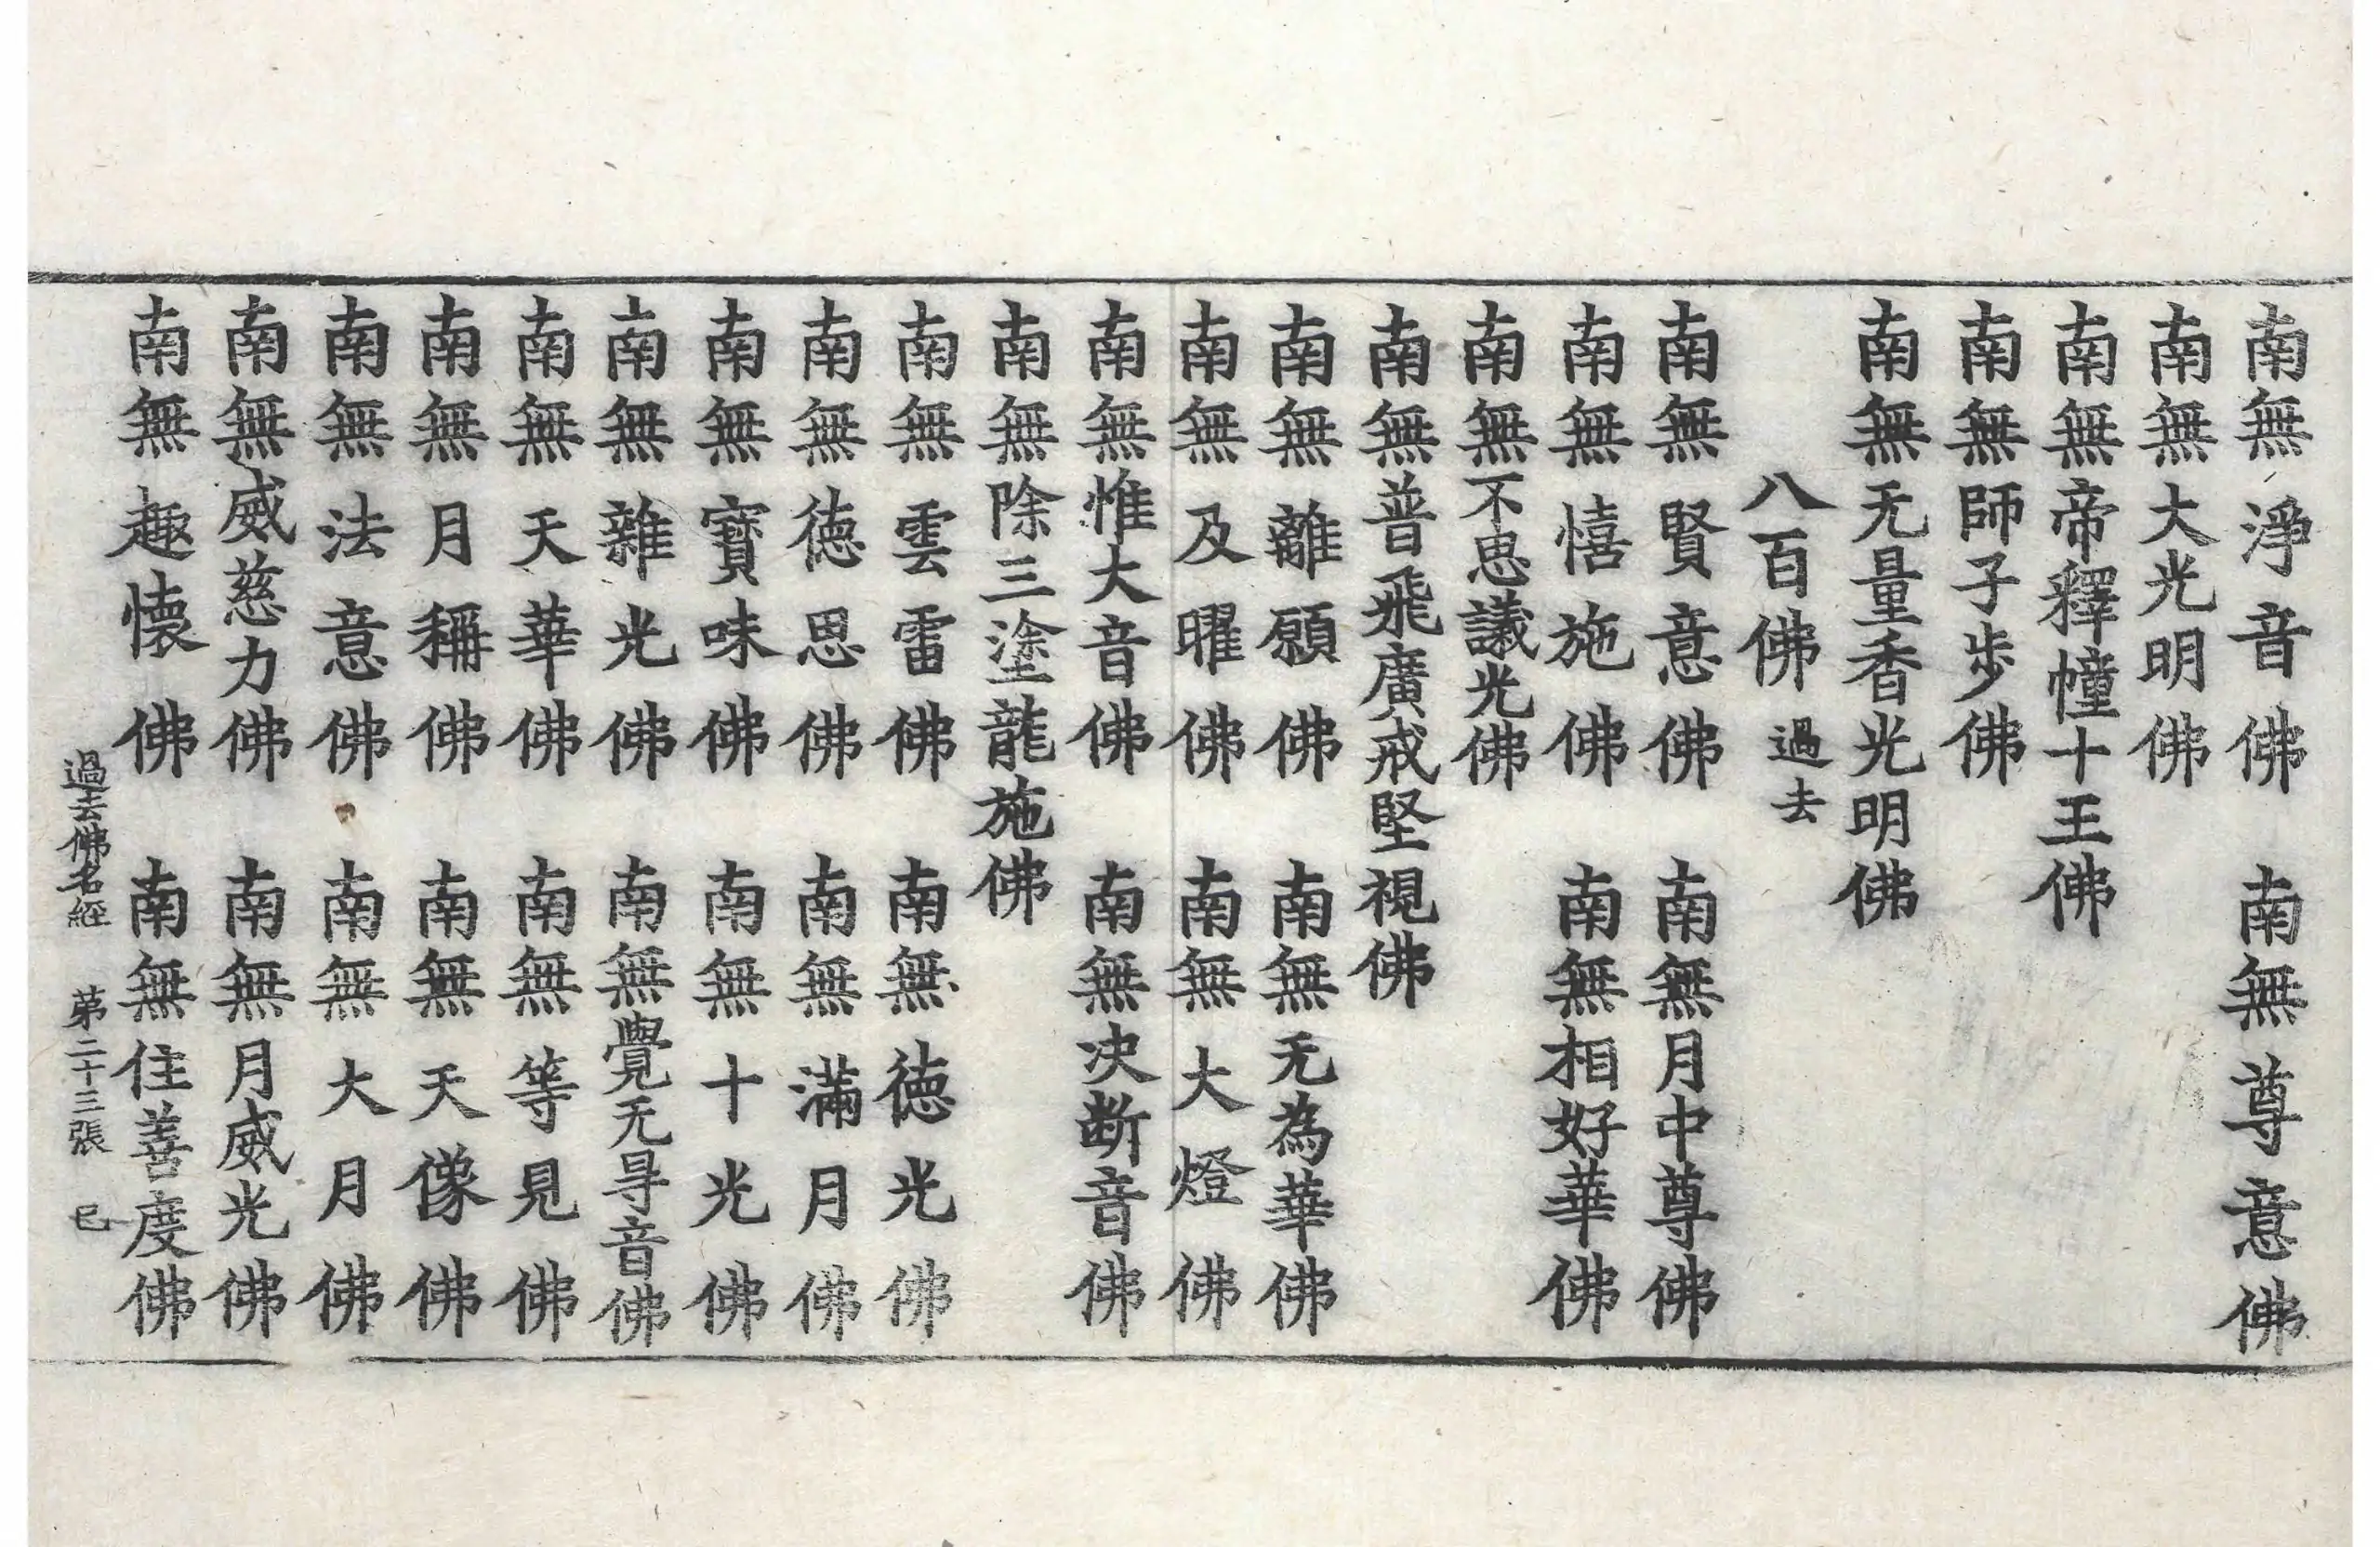 南無淨音佛　南無尊意佛
南無大光明佛
南無帝釋幢十王佛
南無師子步佛
南無无量香光明佛
八百佛　過去
南無賢意佛　南無月中尊佛
南無憘施佛　南無相好華佛
南無不思議光佛
南無普飛廣戒堅視佛
南無離願佛　南無无為華佛
南無及曜佛　南無大燈佛
南無惟大音佛　南無决断音佛
南無除三塗龍施佛
南無雲雷佛　南無德光佛
南無徳思佛　南無滿月佛
南無寶味佛　南無十光佛
南無雜光佛　南無覺无㝵音佛
南無天華佛　南無等見佛
南無月稱佛　南無天像佛
南無法意佛　南無大月佛
南無威慈力佛　南無月威光佛
南無趣懷佛　南無住善度佛
過去佛名經　苐二十三張　巳